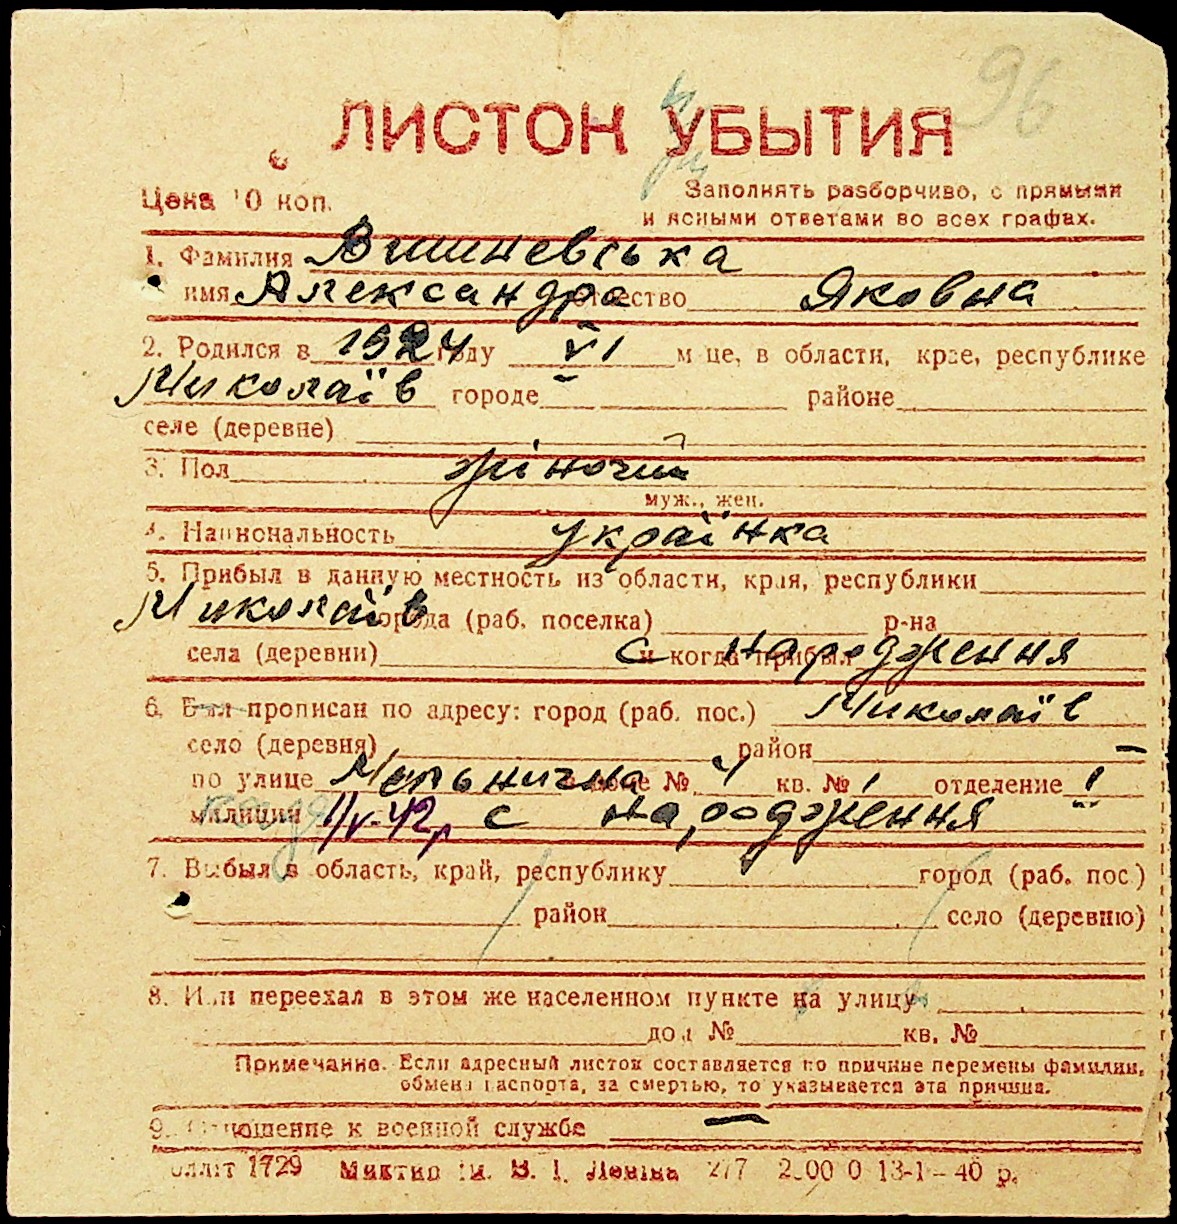 96
ЛИСТОК УБЫТИЯ
Цена 10 коп.
Заполнять разборчиво, с прямыми
и ясными ответами во всех графах.
1. Фамилия Вишневська
имя Александра отчество Яковна
2. Родился в 1924 году VI м-це, в области, крае, республике
Миколаїв городе районе
селе (деревне)
3. Пол жіночий
муж., жен.
4. Национальность українка
5. Прибыл в данную местность из области, края, республики
Миколаїв города (раб. поселка) р-на
села (деревни) и когда прибыл с народження
6. Был прописан по адресу: город (раб. пос.) Миколаїв
село (деревня) район —
по улице Мельнична в доме № 4 кв. № 1 отделение 1
милиции 1/V-42 с народження
7. Выбыл в область, край, республику город (раб. пос.)
район село (деревню)
8. Или переехал в этом же населенном пункте на улицу
дом № кв. №
Примечание. Если адресный листок составляется по причине перемены фамилии,
обмена паспорта, за смертью, то указывается эта причина.
9. Отношение к военной службе —
1729 им. В. І. Леніна 277 13-1-40 р.